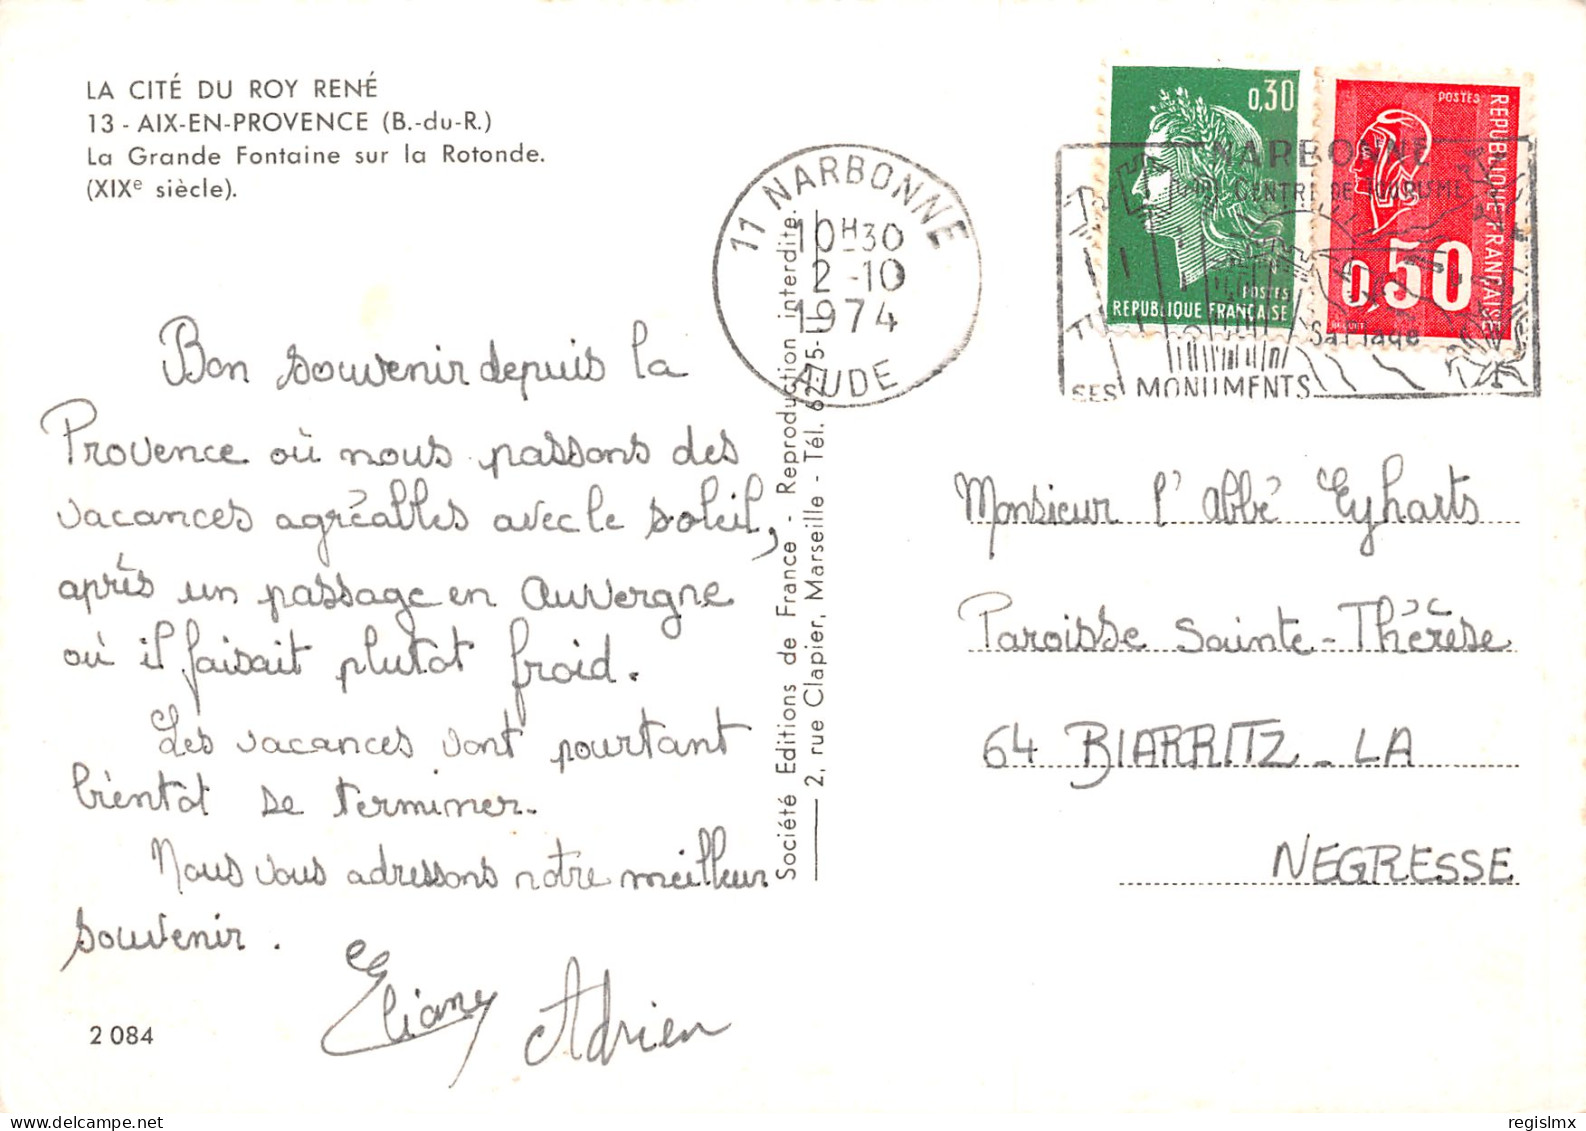 LA CITÉ DU ROY RENÉ
13 - AIX-EN-PROVENCE (B.-du-R.)
La Grande Fontaine sur la Rotonde.
(XIXe siècle).
Bon souvenir depuis la
Provence où nous passons des
vacances agréables avec le soleil,
après un passage en Auvergne
où il faisait plutôt froid.
Les vacances vont pourtant
bientôt se terminer.
Nous vous adressons notre meilleur
souvenir.
Eliane Adrien
2 084
Société Editions de France - Reproduction interdite.
2, rue Clapier, Marseille - Tél. 62-15-
11 NARBONNE
10H30
2-10
1974
AUDE
0,30
POSTES
REPUBLIQUE FRANÇAISE
POSTES
REPUBLIQUE FRANÇAISE
0,50
BEQUET
NARBONNE
CENTRE DE TOURISME
SES MONUMENTS
Monsieur l'abbé Eyharts
Paroisse Sainte-Thérèse
64 BIARRITZ - LA
NEGRESSE
regislmx